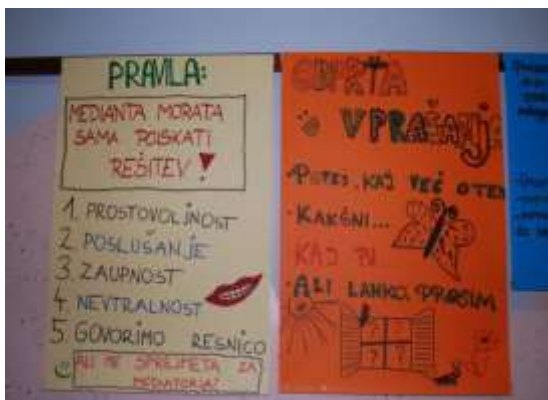 PRAVILA:
MEDIANTA MORATA
SAMA POISKATI
REŠITEV!
1. PROSTOVOLJNOST
2. POSLUŠANJE
3. ZAUPNOST
4. NEVTRALNOST
5. GOVORIMO RESNICO
ALI ME SPREJMETA ZA
MEDIATORJA?
ODPRTA
VPRAŠANJA
• POVEJ KAJ VEČ O TEM
• KAKŠNI...
KAJ
• ALI LAHKO, PROSIM
? ?
? ?